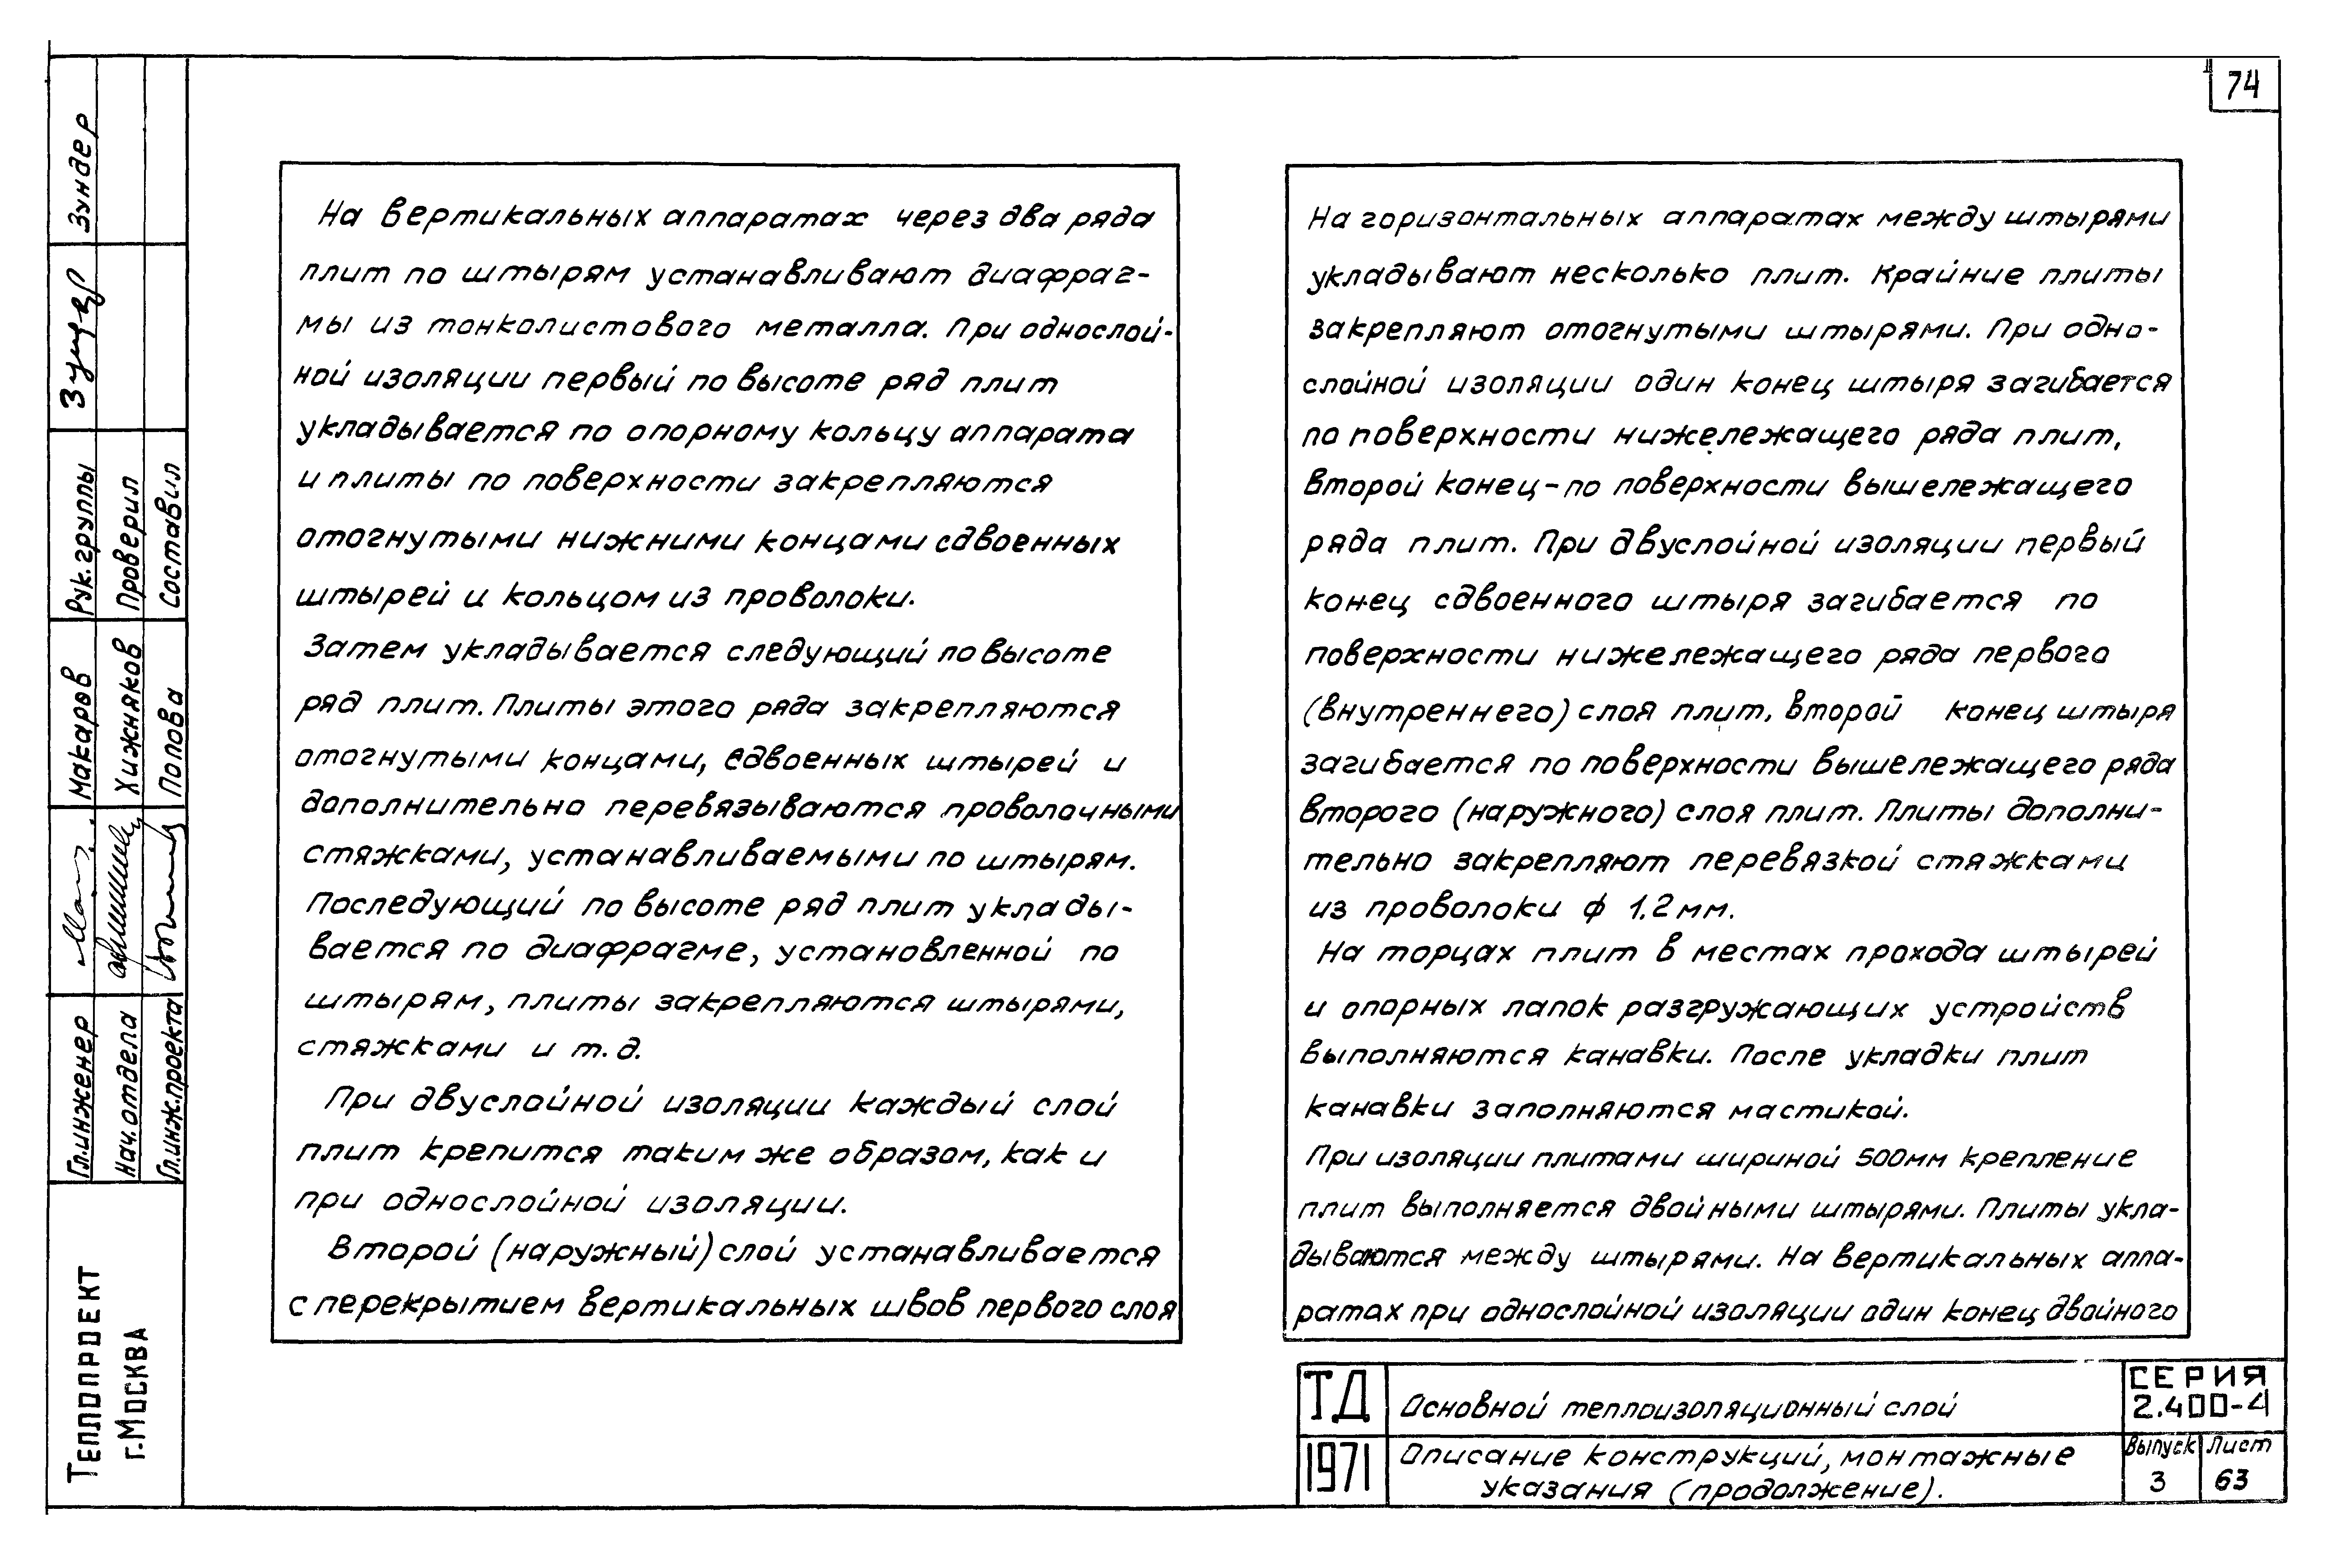 74
На вертикальных аппаратах через два ряда
плит по штырям устанавливают диафраг-
мы из тонколистового металла. При однослой-
ной изоляции первый по высоте ряд плит
укладывается по опорному кольцу аппарата
и плиты по поверхности закрепляются
отогнутыми нижними концами сдвоенных
штырей и кольцом из проволоки.
Затем укладывается следующий по высоте
ряд плит. Плиты этого ряда закрепляются
отогнутыми концами, сдвоенных штырей и
дополнительно перевязываются проволочными
стяжками, устанавливаемыми по штырям.
Последующий по высоте ряд плит уклады-
вается по диафрагме, установленной по
штырям, плиты закрепляются штырями,
стяжками и т.д.
При двуслойной изоляции каждый слой
плит крепится таким же образом, как и
при однослойной изоляции.
Второй (наружный) слой устанавливается
с перекрытием вертикальных швов первого слоя
На горизонтальных аппаратах между штырями
укладывают несколько плит. Крайние плиты
закрепляют отогнутыми штырями. При одно-
слойной изоляции один конец штыря загибается
по поверхности нижележащего ряда плит,
второй конец - по поверхности вышележащего
ряда плит. При двуслойной изоляции первый
конец сдвоенного штыря загибается по
поверхности нижележащего ряда первого
(внутреннего) слоя плит, второй конец штыря
загибается по поверхности вышележащего ряда
второго (наружного) слоя плит. Плиты дополни-
тельно закрепляют перевязкой стяжками
из проволоки ф 1.2 мм.
На торцах плит в местах прохода штырей
и опорных лапок разгружающих устройств
выполняются канавки. После укладки плит
канавки заполняются мастикой.
При изоляции плитами шириной 500мм крепление
плит выполняется двойными штырями. Плиты укла-
дываются между штырями. На вертикальных аппа-
ратах при однослойной изоляции один конец двойного
ТД
Основной теплоизоляционный слой
СЕРИЯ
2.400-4
1971
Описание конструкций, монтажные
указания (продолжение).
Выпуск
3
Лист
63
Теплопроект
г. Москва
Гл.инженер
Макаров
Рук.группы
Зундер
Нач.отдела
Хижняков
Проверил
Гл.инж.проекта
Попова
Составил